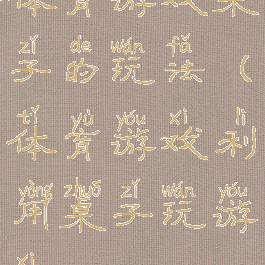 体育游戏桌
zǐ de wán fǎ
子的玩法（
tǐ yù yóu xì lì
体育游戏利
yòng zhuō zǐ wán yóu
用桌子玩游
xì